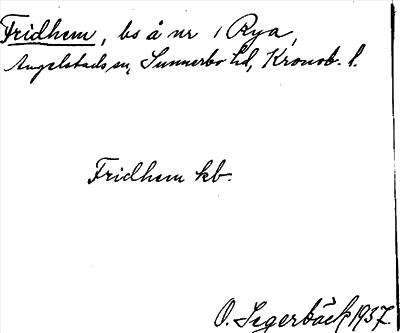 Fridhem, bs å nr 1 Rya,
Angelstads sn, Sunnerbo hd, Kronob. l.
Fridhem kb.
O. Segerbäck 1937.